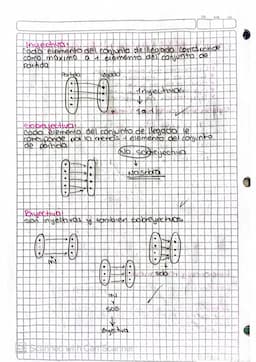 Inyectiva:
Cada elemento del conjunto de llegada corresponde
como máximo a 1 elemento del conjunto de
partida
Partida llegada
Inyectiva
1 a 1
Sobreyectiva:
Cada elemento del conjunto de llegada le
corresponde por lo menos 1 elemento del conjunto
de partida
No sobreyectiva
No sobra
Biyectiva:
son inyectivas y tambien sobreyectivas
INJ
SOB
INJ
y
SOB
Biyectiva
Scanned with CamScanner